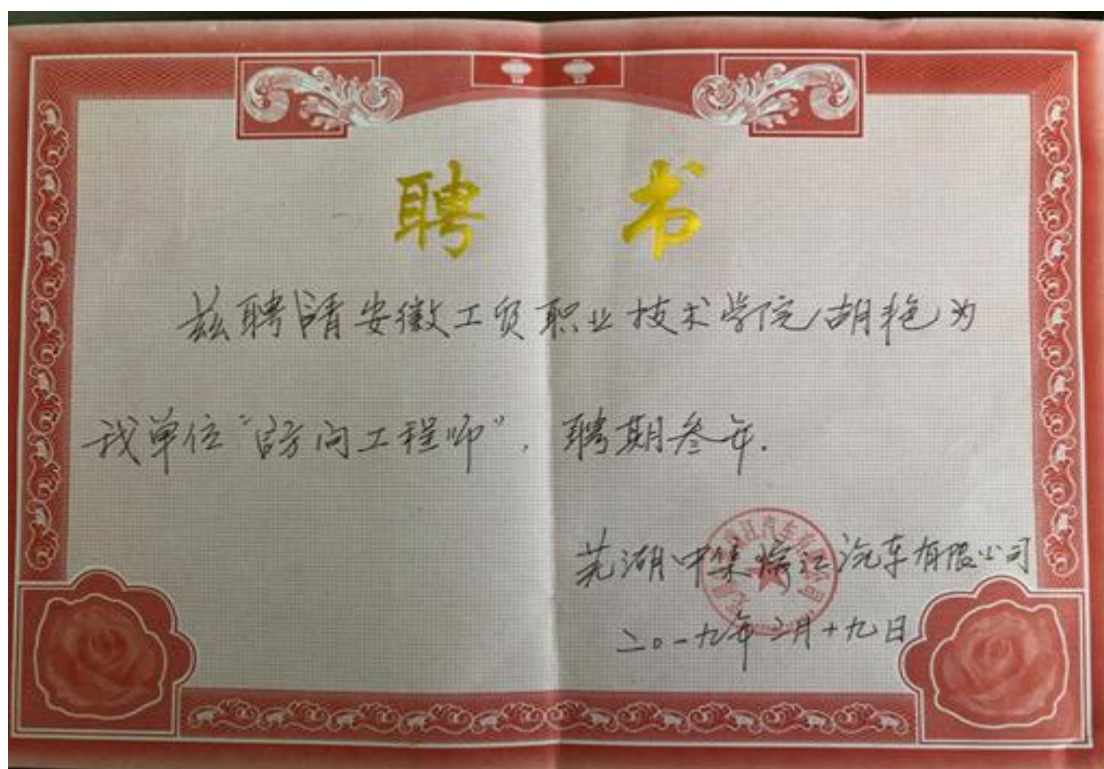 聘 书
兹聘请安徽工贸职业技术学院胡艳为
我单位“访问工程师”，聘期叁年.
芜湖中集瑞江汽车有限公司
二〇一九年二月十九日